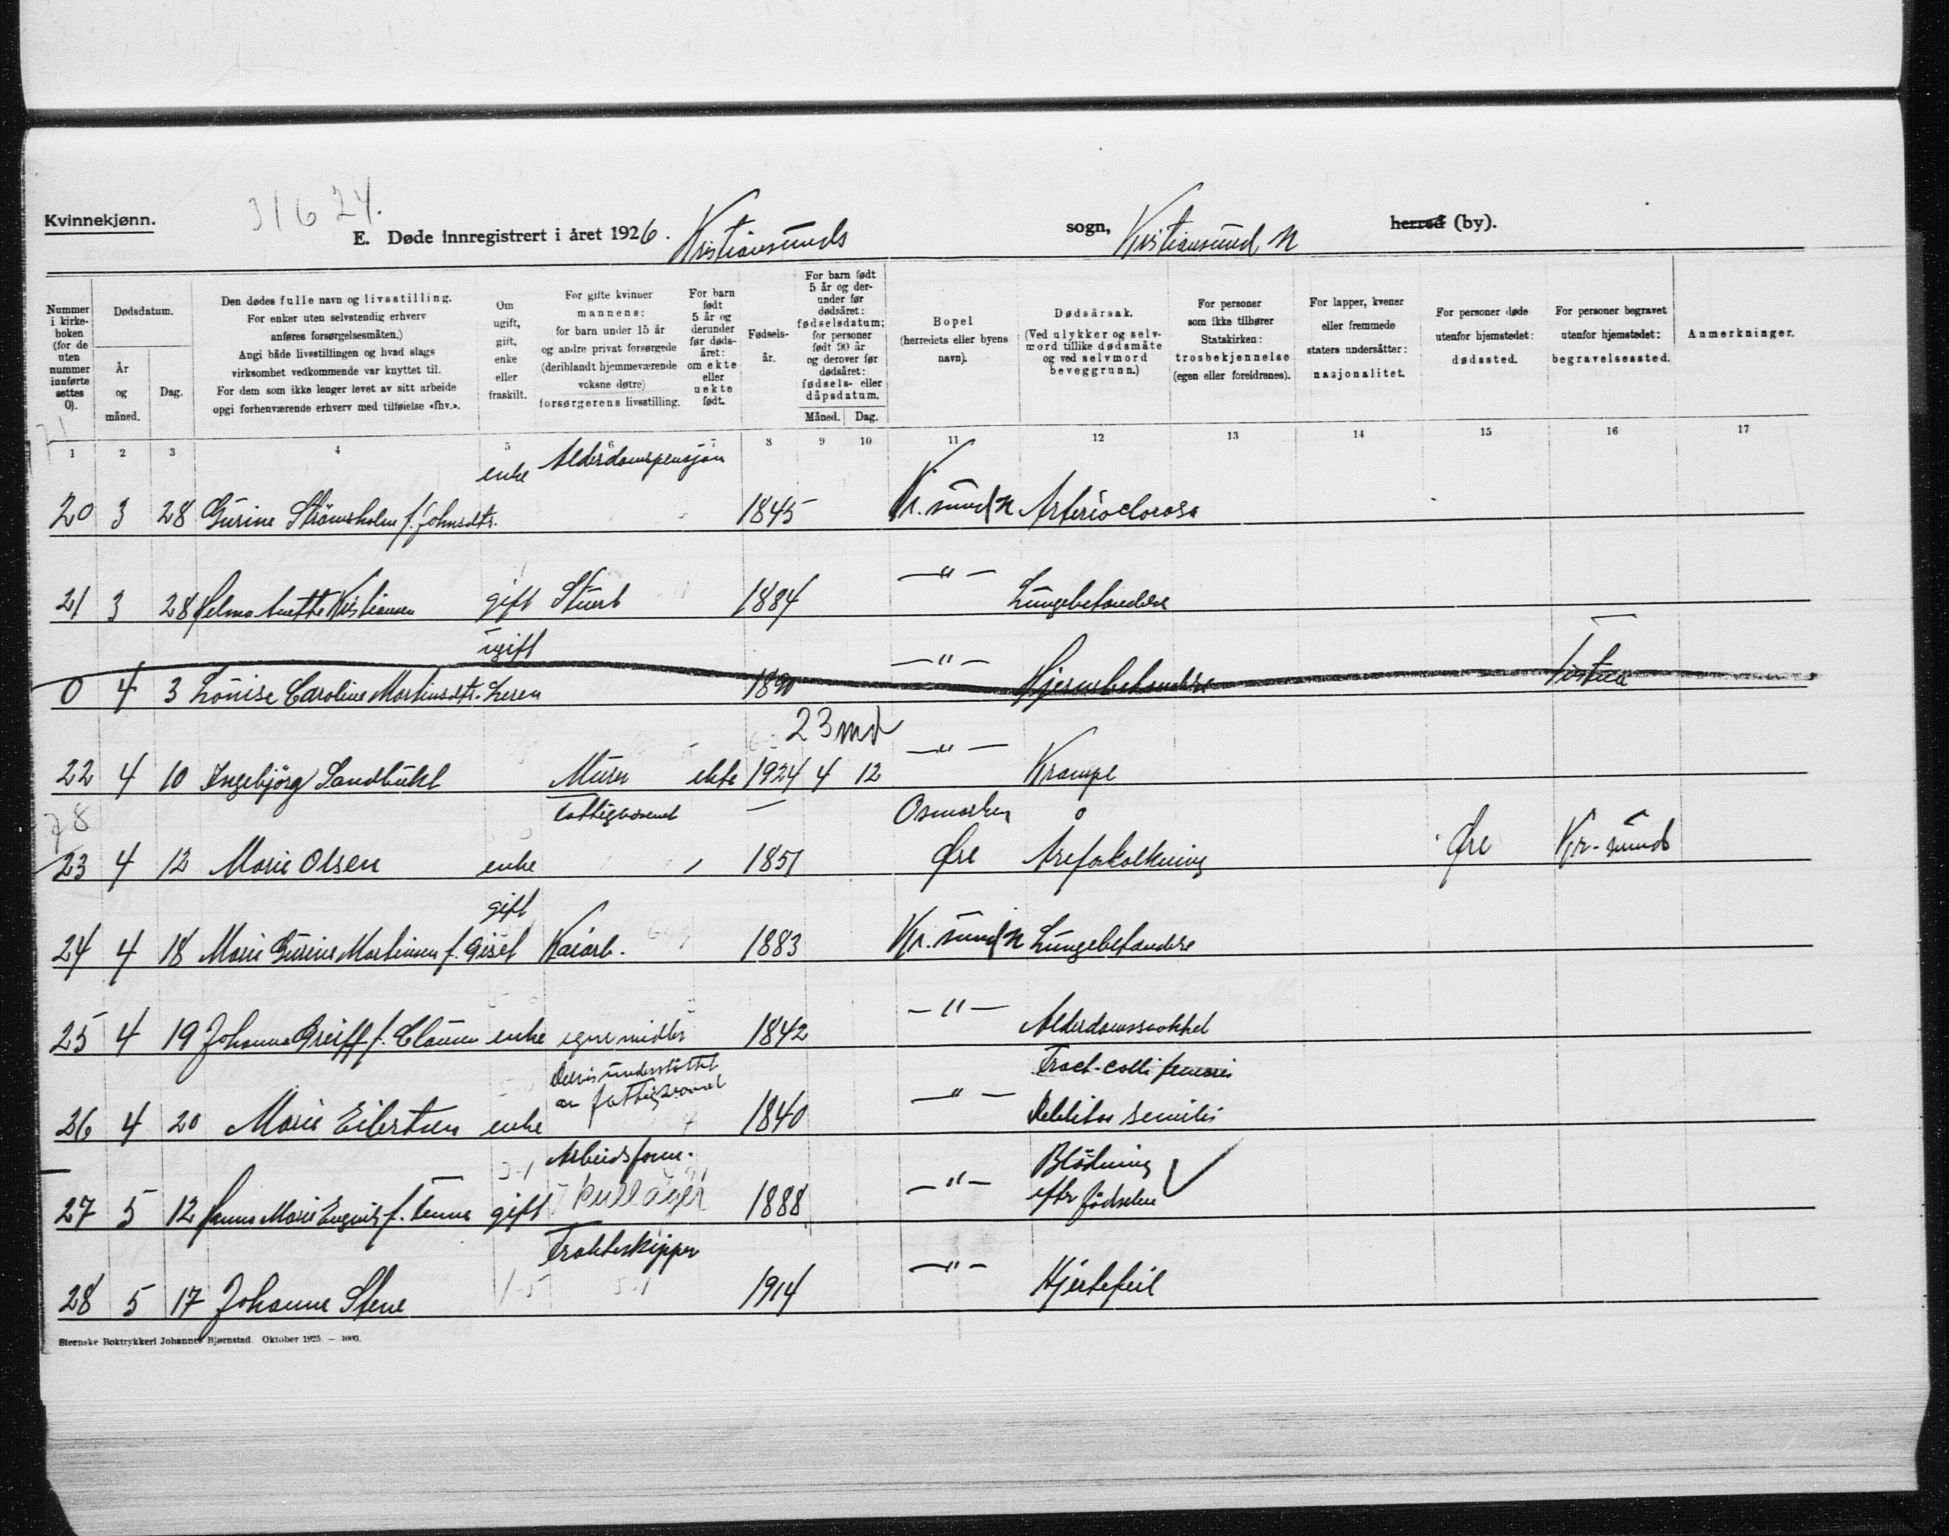 Kvinnekjønn.
31624.
E. Døde innregistrert i året 1926. Kristiansunds sogn, Kristiansund N herred (by).
Nummer i kirkeboken (for de uten nummer innførte settes 0).
Dødsdatum.
År og måned.
Dag.
Den dødes fulle navn og livsstilling.
For enker uten selvstendig erhverv
anføres forsørgelsesmåten.)
Angi både livsstillingen og hvad slags
virksomhet vedkommende var knyttet til.
For dem som ikke lenger levet av sitt arbeide
opgi forhenværende erhverv med tilføielse «fhv.».
Om ugift, gift, enke eller fraskilt.
For gifte kvinner
mannens:
for barn under 15 år
og andre privat forsørgede
(deriblandt hjemmeværende
voksne døtre)
forsørgerens livsstilling.
For barn født 5 år og derunder før dødsåret: om ekte eller uekte født.
Fødselsår.
For barn født 5 år og derunder før dødsåret: fødselsdatum; for personer født 90 år og derover før dødsåret: fødsels- eller dåpsdatum.
Måned. Dag.
Bopel
(herredets eller byens
navn).
Dødsårsak.
(Ved ulykker og selvmord tillike dødsmåte
og ved selvmord
beveggrunn.)
For personer
som ikke tilhører
Statskirken:
trosbekjennelse
(egen eller foreldrenes).
For lapper, kvener
eller fremmede
staters undersåtter:
nasjonalitet.
For personer døde
utenfor hjemstedet:
dødssted.
For personer begravet
utenfor hjemstedet:
begravelsessted.
Anmerkninger.
1 2 3 4 5 6 7 8 9 10 11 12 13 14 15 16 17
enke Alderdomspensjon
20 3 28 Gurine Strømsholm f. Johnsdtr. 1845 Kr. sund N
21 3 28 Kristiansen gift 1884 —"— Lungebetendelse
ugift
0 4 3 Lovise Caroline Martinsdtr. Leren 1890 —"—
23 md
22 4 10 Ingebjörg Sandbukt Murer ekte 1924 4 12 —"— Krampe
78
Fattigvesenet Osmarken
23 4 12 Marie Olsen enke 1851 Øre Åreforkalkning Øre Kr-sund
gift
24 4 18 Marie Gurine f. Kaiarb. 1883 Kr. sund N Lungebetendelse
25 4 19 Johanna Greiff f. Clausen enke egne midler 1842 —"—
Delvis understöttet Fract. colli femoris
av fattigvesenet
26 4 20 Marie Eilertsen enke 1840 —"— Debilitas senilis
Arbeidsform. Blödning
27 5 12 Marie gift kullager 1888 —"— efter födselen
Frakteskipper
28 5 17 Johanne Stene 1914 —"— Hjertefeil
Steenske Boktrykkeri Johannes Bjørnstad. Oktober 1925. — 1000.